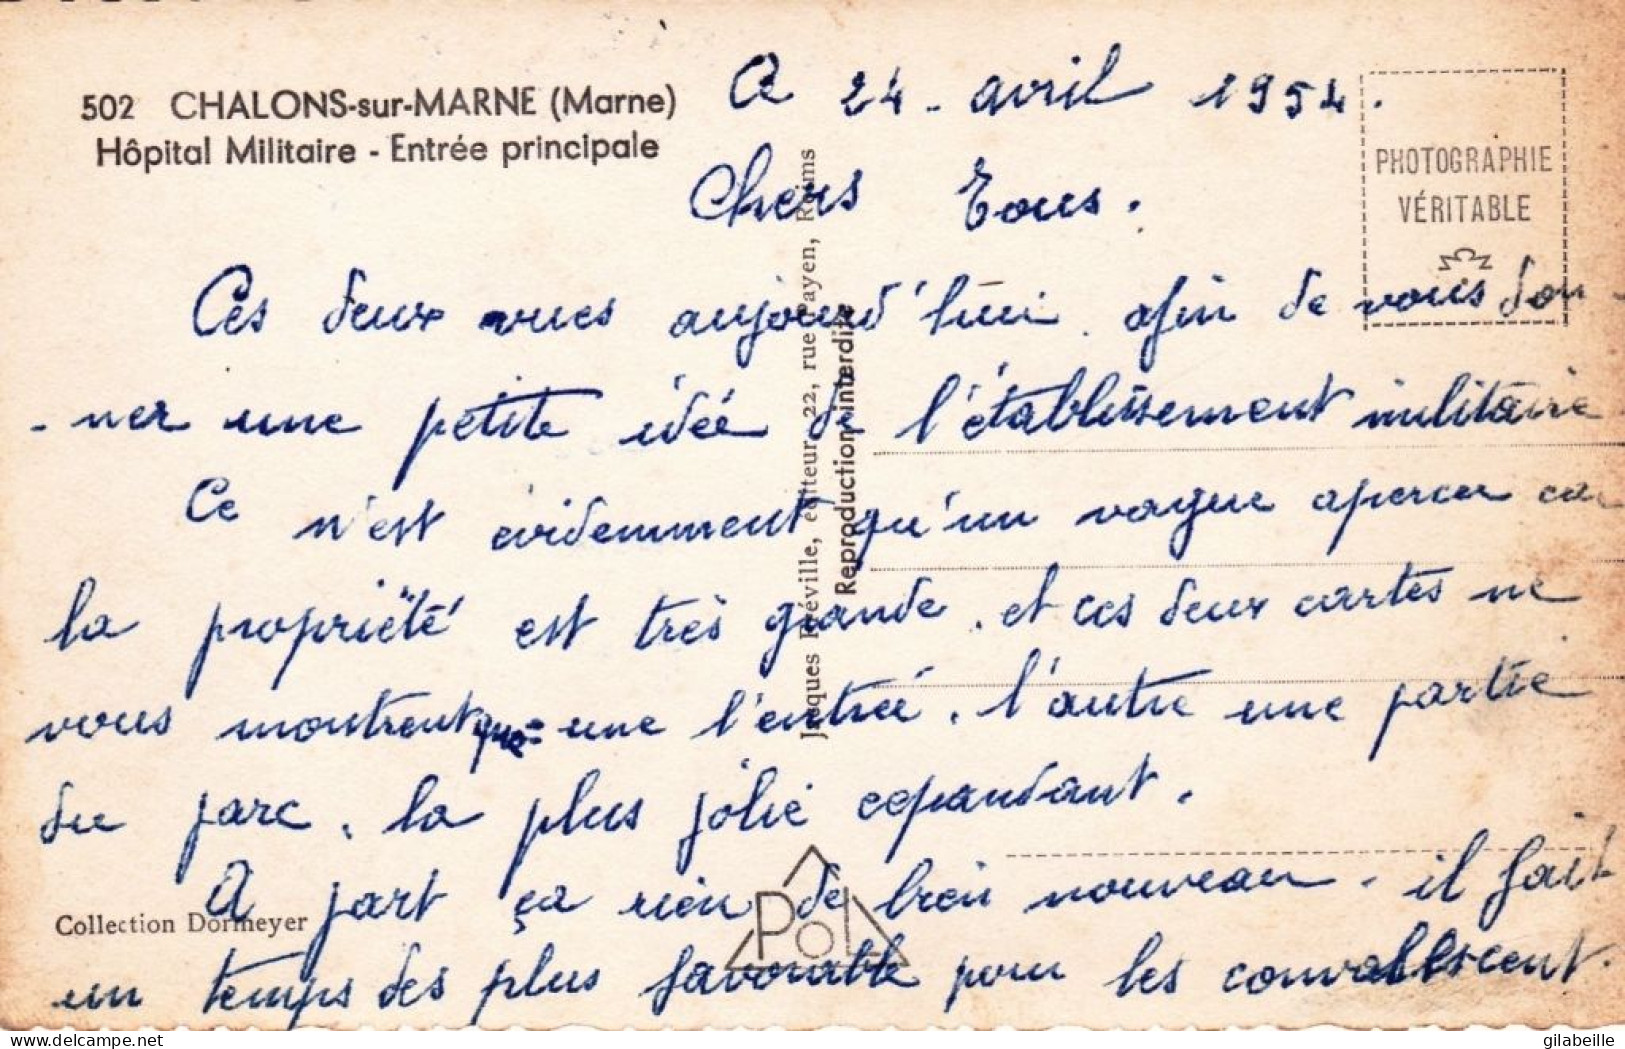 502 CHALONS-sur-MARNE (Marne)
Hôpital Militaire - Entrée principale
A 24 - avril 1954.
PHOTOGRAPHIE
VÉRITABLE
Chers Tous.
Ces deux vues aujourd'hui, afin de vous don-
-ner une petite idée de l'établissement militaire
Ce n'est évidemment qu'un vague apercu car
la propriété est très grande, et ces deux cartes ne
vous montrent que = une l'entrée, l'autre une partie
du parc, la plus jolie cependant.
A part ça rien de bien nouveau, il fait
un temps des plus favorable pour les convallescent.
Collection Dormeyer
Jacques Fréville, éditeur, 22, rue Payen, Reims
Reproduction interdite
POL
gilabeille